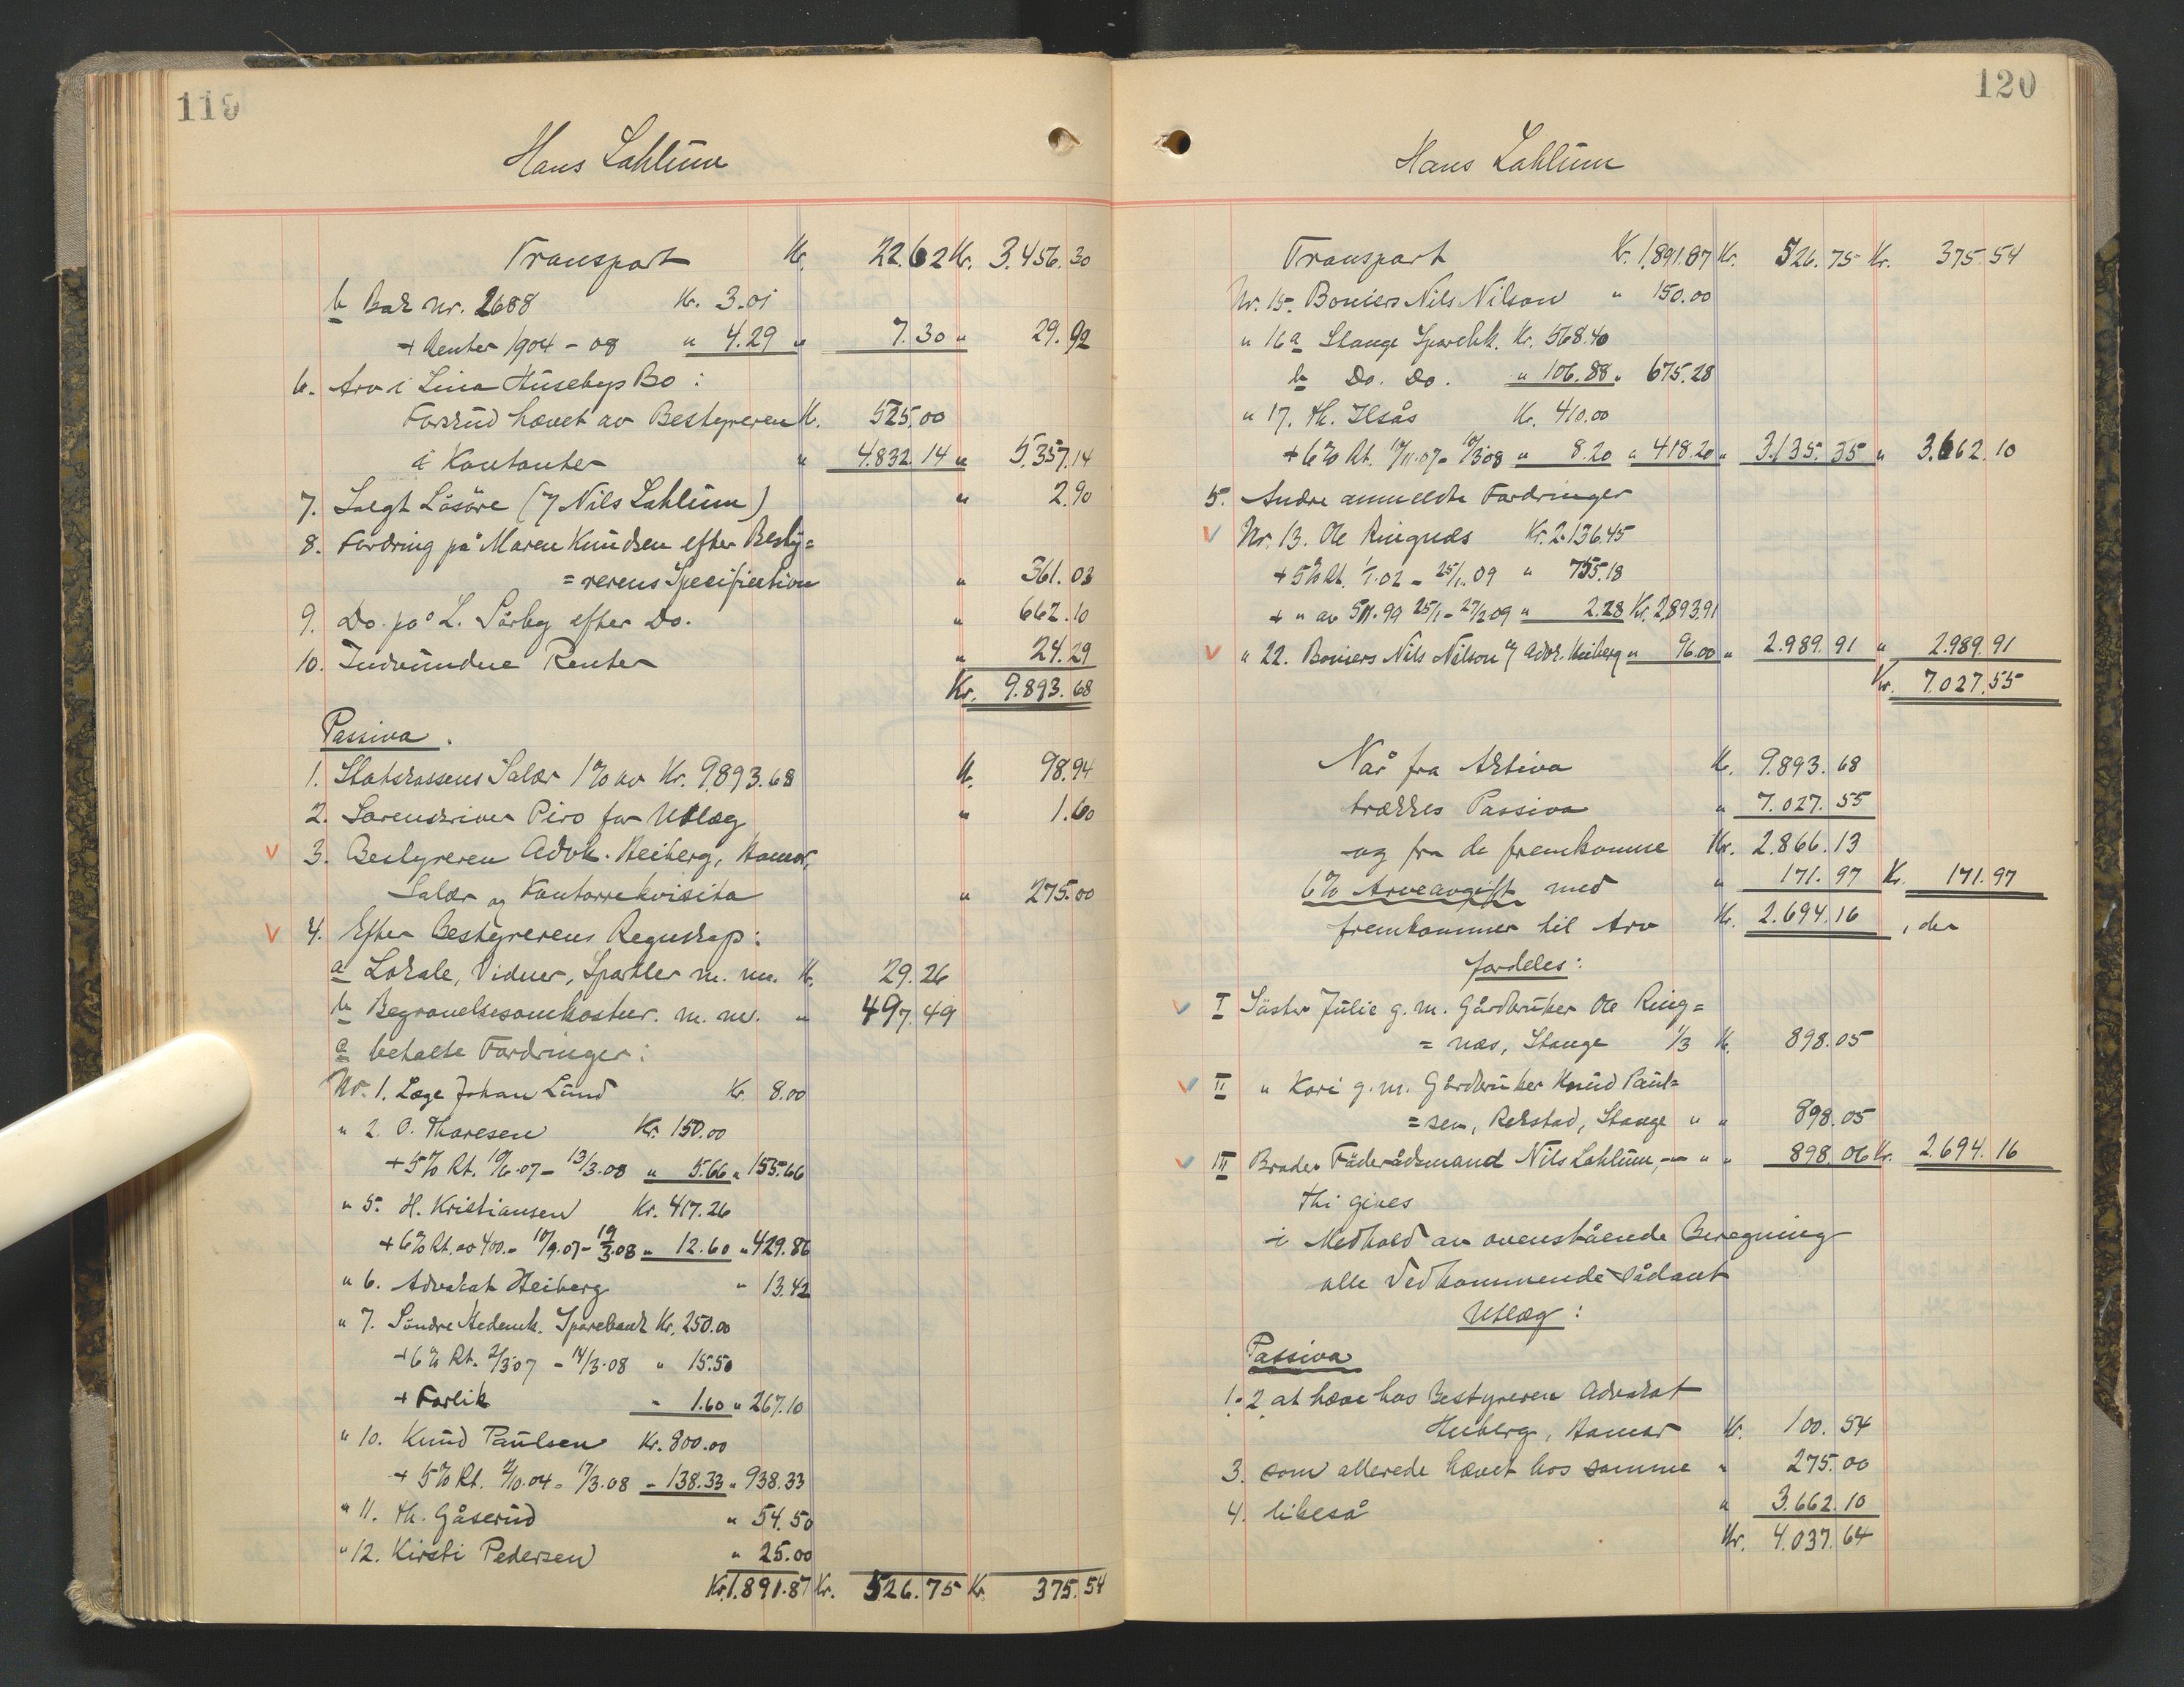 119
Hans Lahlum
Transport Kr. 22.62 Kr. 3.456.30
b Bok nr. 2688 Kr. 3.01
+ Renter 1904 - 08 " 4.29 " 7.30 " 29.92
6. Arv i Lina Husebys Bo :
Forskud hævet av Bestyreren K. 525.00
i Kontanter " 4.832.14 " 5.357.14
7. Solgt Løsøre (7 Nils Lahlum) " 2.90
8. Fordring på Maren Knudsen efter Besty=
=rerens Specifikation " 361.03
9. Do. på L. Sörby efter Do. " 662.10
10. Indvundne Renter " 24.29
Kr. 9.893.68
Passiva.
1. Statskassens Salær 1% av Kr. 9.893.68 K. 98.94
2. Sorenskriver Piro for Utlæg " 1.60
3. Bestyreren Advk. Heiberg, Hamar,
Salær og Kontorrekvisita " 275.00
4. Efter Bestyrerens Regnskap :
a Lokale, Vidner, Sportler m. m. K. 29.26
b Begravelsesomkostn. m. m. " 497.49
c betalte Fordringer :
Nr. 1. Læge Johan Lund Kr. 8.00
" 2. O. Thoresen Kr. 150.00
+ 5% Rt. 19/6.07 - 13/3.08 " 5.66 " 155.66
" 5. H. Kristiansen Kr. 417.26
+ 6% Rt. av 400.- 10/9.07 - 19/3.08 " 12.60 " 429.86
" 6. Advokat Heiberg " 13.42
" 7. Söndre Hedemk. Sparebank Kr. 250.00
+ 6% Rt. 2/3.07 - 14/3.08 " 15.50
+ Forlik " 1.60 " 267.10
" 10. Knud Paulsen Kr. 800.00
+ 5% Rt. 2/10.04 - 17/3.08 - 138.33 " 938.33
" 11. Th. Gåserud " 54.50
" 12. Kirsti Pedersen " 25.00
Kr. 1.891.87 Kr. 526.75 Kr. 375.54
120
Hans Lahlum
Transport Kr. 1.891.87 Kr. 526.75 Kr. 375.54
Nr. 15. Boniers Nils Nilson " 150.00
" 16 a Stange Sparebk. Kr. 568.40
b Do. Do. " 106.88 " 675.28
" 17. Th. Ilsås Kr. 410.00
+ 6% Rt. 10/11.07 - 10/3.08 " 8.20 " 418.20 " 3.135.35 " 3.662.10
5. Andre anmeldte Fordringer
Nr. 13. Ole Ringnes Kr. 2.136.45
+ 5% Rt. 1/1.02 - 25/1.09 " 755.18
+ " av 511.99 25/1 - 27/2 09 " 2.28 Kr. 2.893.91
" 22. Boniers Nils Nilson 7 Advk. Heiberg " 96.00 " 2.989.91 " 2.989.91
Kr. 7.027.55
Når fra Aktiva K. 9.893.68
trækkes Passiva " 7.027.55
og fra de fremkomne Kr. 2.866.13
6% Arveavgift med " 171.97 Kr. 171.97
fremkommer til Arv Kr. 2.694.16 , der
fordeles :
I Söster Julie g. m. Gårdbruker Ole Ring=
= næs, Stange 1/3 K. 898.05
II " Kari g. m. Gårdbruker Knud Paul=
= sen, Rekstad, Stange " " 898.05
III Broder Föderådsmand Nils Lahlum, - " " 898.06 Kr. 2.694.16
Thi gives
i Medhold av ovenstående Beregning
alle Vedkommende sådant
Utlæg :
Passiva
1-2 at hæve hos Bestyreren Advokat
Heiberg, Hamar Kr. 100.54
3. som allerede hævet hos samme " 275.00
4. likeså " 3.662.10
Kr. 4.037.64